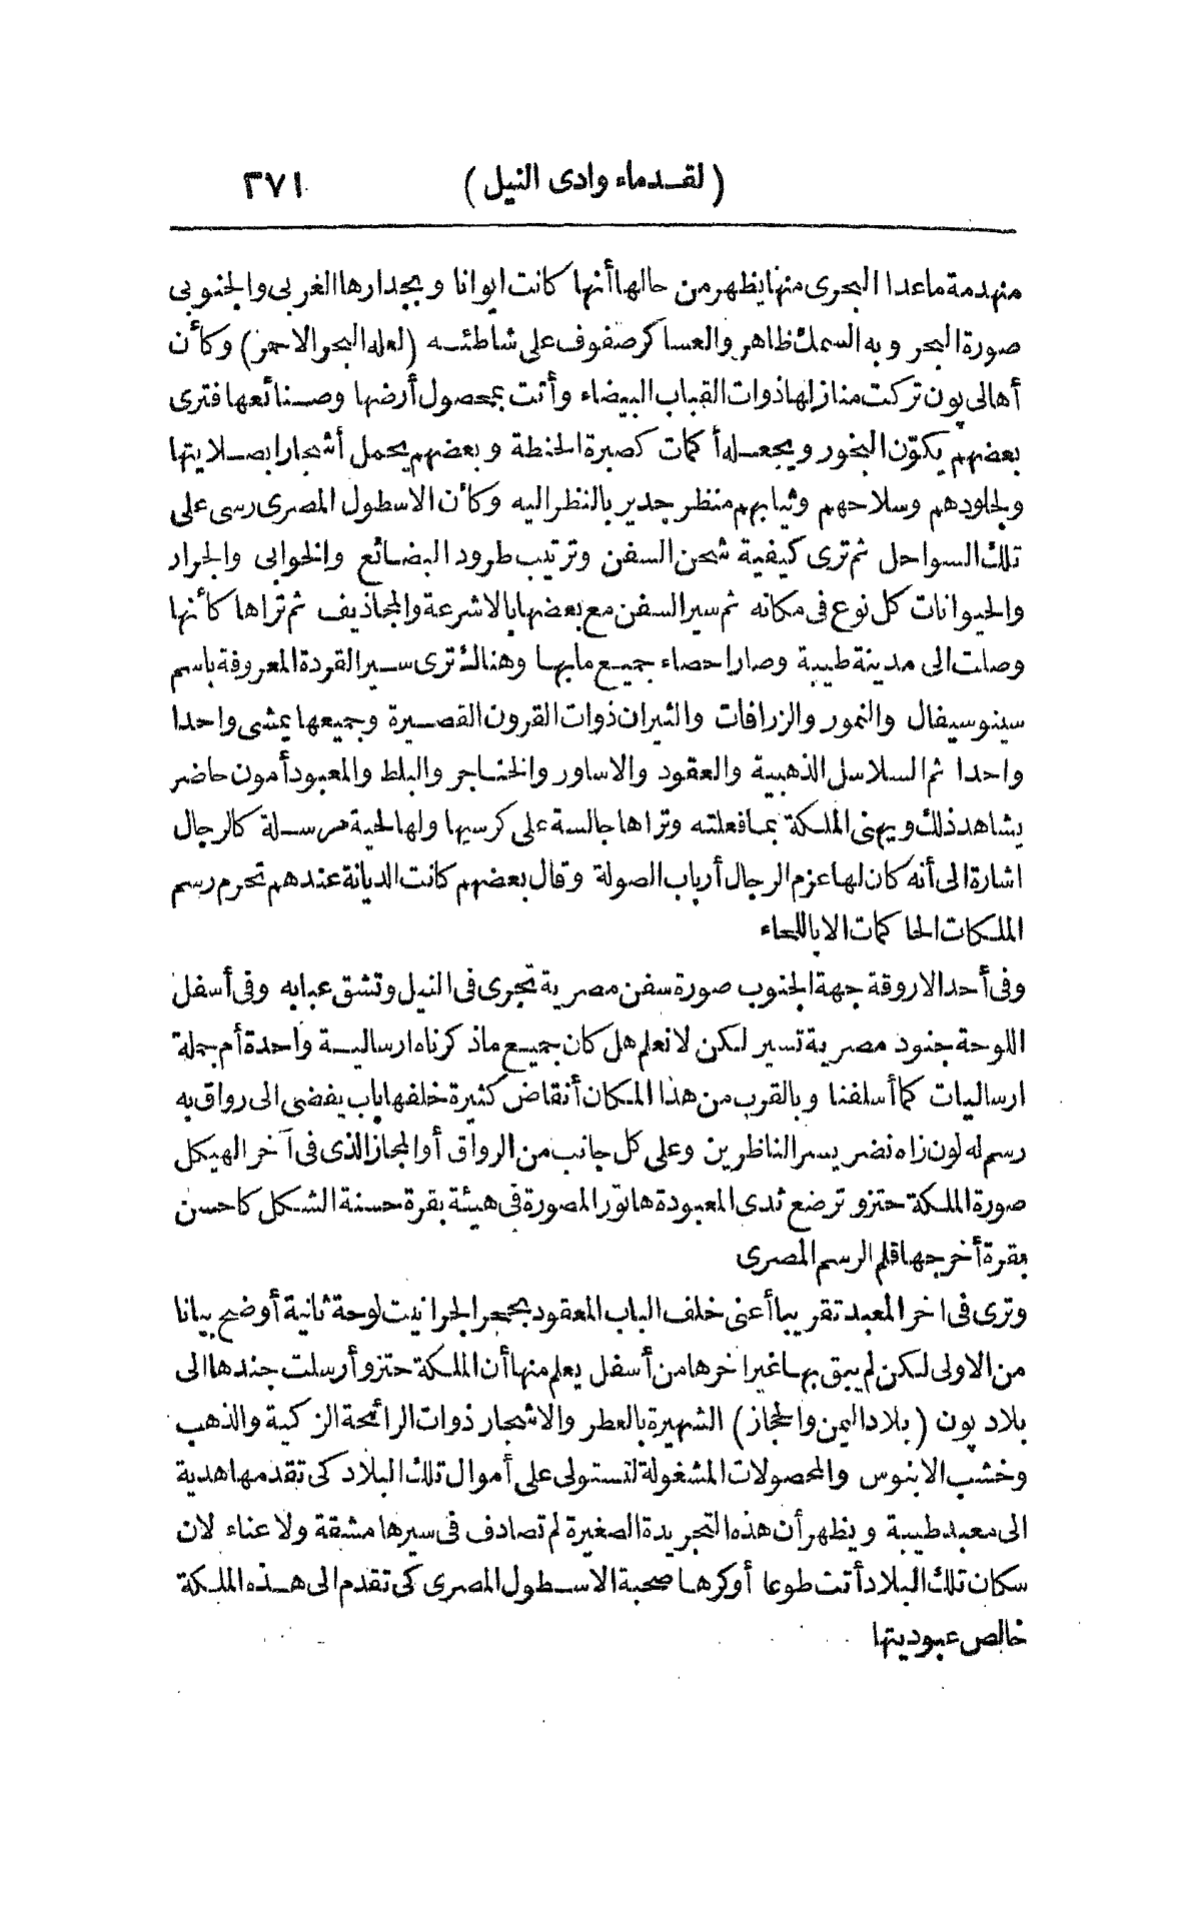 (لقدماء وادى النيل) ٢٧١
منهدمة ماعدا البحرى منها يظهر من حالها أنها كانت ايوانا وبجدارها الغربى والجنوبى
صورة البحر وبه السمك ظاهر والعساكر صفوف على شاطئه (لعله البحر الاحمر) وكأن
أهالى پون تركت منازلها ذوات القباب البيضاء وأتت بمحصول أرضها وصنائعها فترى
بعضهم يكوّن البخور ويجعله أكمات كصبرة الحنطة وبعضهم يحمل أشجارا بصلايتها
ولجلودهم وسلاحهم وثيابهم منظر جدير بالنظر اليه وكأن الاسطول المصرى رسى على
تلك السواحل ثم ترى كيفية شحن السفن وترتيب طرود البضائع والخوابى والجرار
والحيوانات كل نوع فى مكانه ثم سير السفن مع بعضها بالاشرعة والمجاذيف ثم تراها كأنها
وصلت الى مدينة طيبة وصار احصاء جميع مابها وهناك ترى سير القردة المعروفة باسم
سينوسيفال والنمور والزرافات والثيران ذوات القرون القصيرة وجميعها يمشى واحدا
واحدا ثم السلاسل الذهبية والعقود والاساور والخناجر والبلط والمعبود أمون حاضر
يشاهد ذلك ويهنى الملكة بما فعلته وتراها جالسة على كرسيها ولها لحية مرسلة كالرجال
اشارة الى أنه كان لها عزم الرجال أرباب الصولة وقال بعضهم كانت الديانة عندهم تحرم رسم
الملكات الحاكمات الا باللحاء
وفى أحد الاروقة جهة الجنوب صورة سفن مصرية تجرى فى النيل وتشق عبابه وفى أسفل
اللوحة جنود مصرية تسير لكن لانعلم هل كان جميع ماذكرناه ارسالية واحدة أم جملة
ارساليات كما أسلفنا وبالقرب من هذا المكان أنقاض كثيرة خلفها باب يفضى الى رواق به
رسم له لون زاه نضر يسر الناظرين وعلى كل جانب من الرواق أو المجاز الذى فى آخر الهيكل
صورة الملكة حتزو ترضع ثدى المعبودة هاتور المصورة فى هيئة بقرة حسنة الشكل كاحسن
بقرة أخرجها قلم الرسم المصرى
وترى فى اخر المعبد تقريبا أعنى خلف الباب المعقود بحجر الجرانيت لوحة ثانية أوضح بيانا
من الاولى لكن لم يبق بها غير اخرها من أسفل يعلم منها أن الملكة حتزو أرسلت جندها الى
بلاد پون (بلاد اليمن والحجاز) الشهيرة بالعطر والاشجار ذوات الرائحة الزكية والذهب
وخشب الابنوس والمحصولات المشغولة لتستولى على أموال تلك البلاد كى تقدمها هدية
الى معبد طيبة ويظهر أن هذه التجريدة الصغيرة لم تصادف فى سيرها مشقة ولا عناء لان
سكان تلك البلاد أتت طوعا أوكرها صحبة الاسطول المصرى كى تقدم الى هذه الملكة
خالص عبوديتها